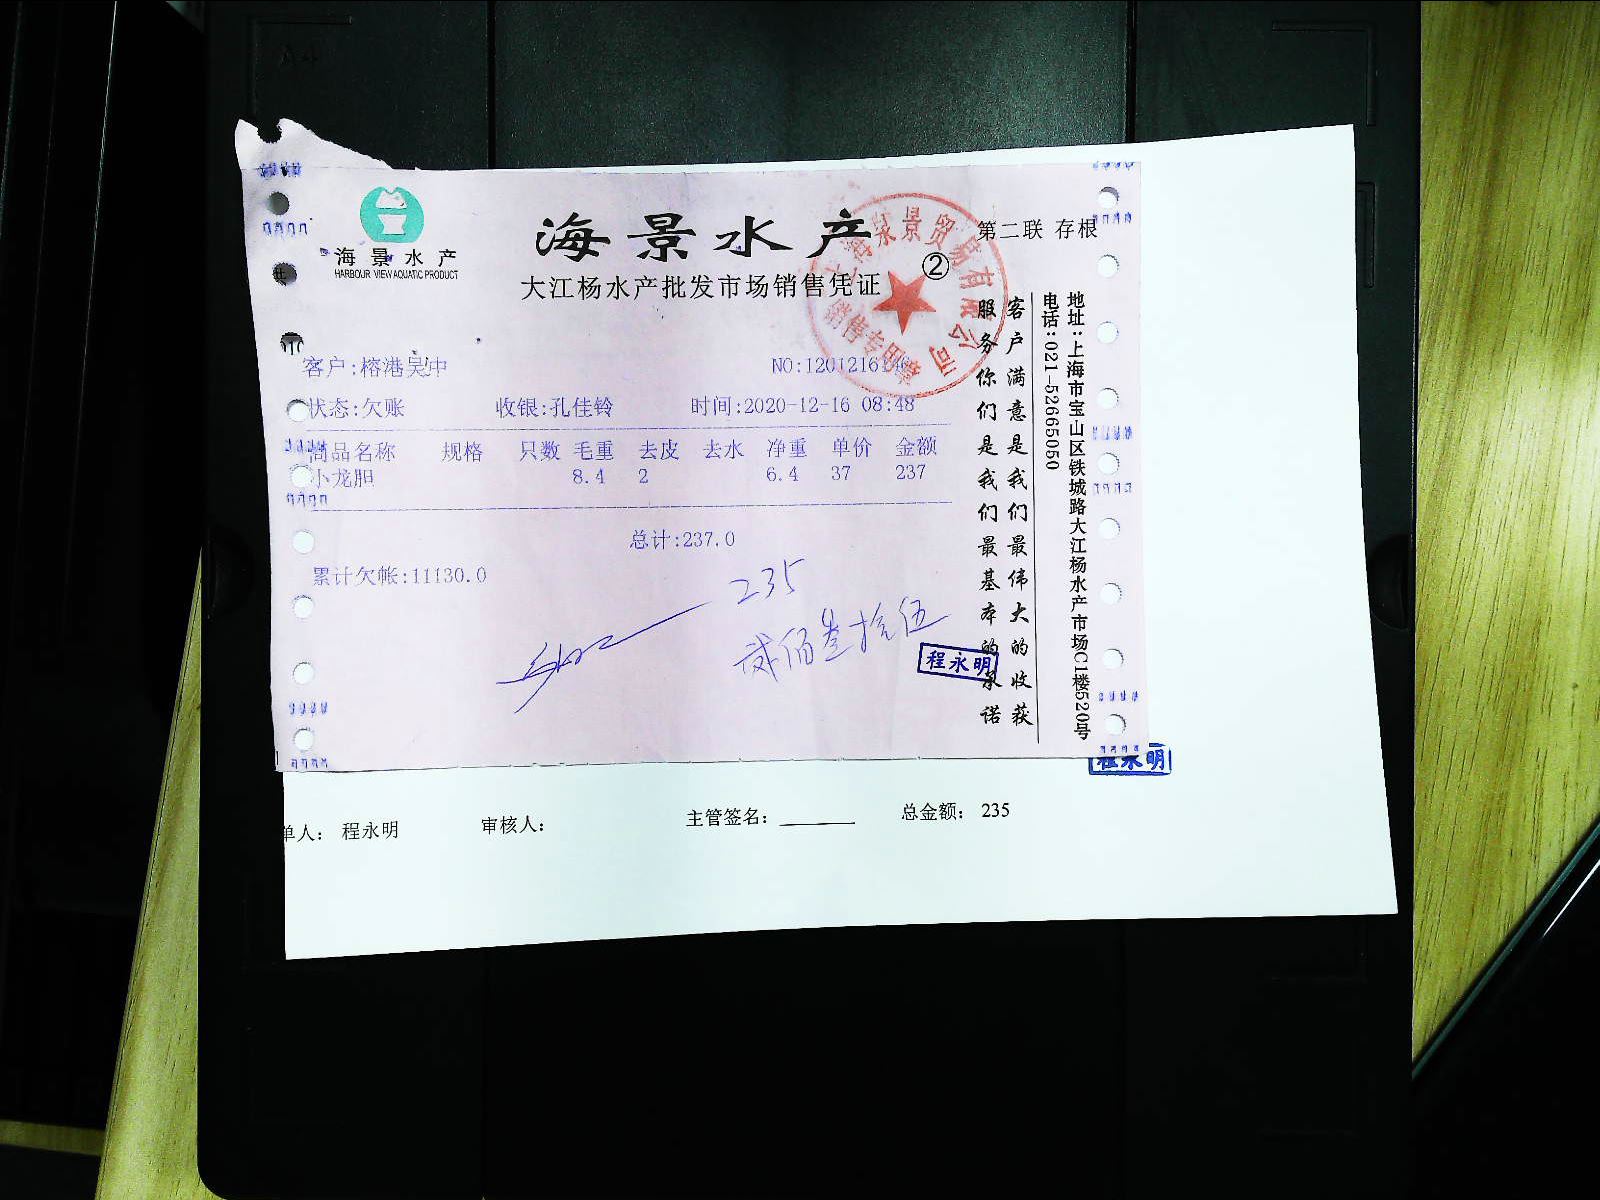 海景水产
HARBOUR VIEW AQUATIC PRODUCT
海景水产
大江杨水产批发市场销售凭证
②
第二联 存根
景贸易有限公司
销售专用章
客户:榕港吴中
NO:1201216
状态:欠账 收银:孔佳铃 时间:2020-12-16 08:48
商品名称 规格 只数 毛重 去皮 去水 净重 单价 金额
小龙胆 8.4 2 6.4 37 237
总计:237.0
累计欠帐:11130.0
235
贰佰叁拾伍
程永明
客户满意是我们最伟大的收获
服务你们是我们最基本的承诺
地址:上海市宝山区铁城路大江杨水产市场C1楼520号
电话:021-52665050
程永明
单人: 程永明 审核人: 主管签名: 总金额: 235